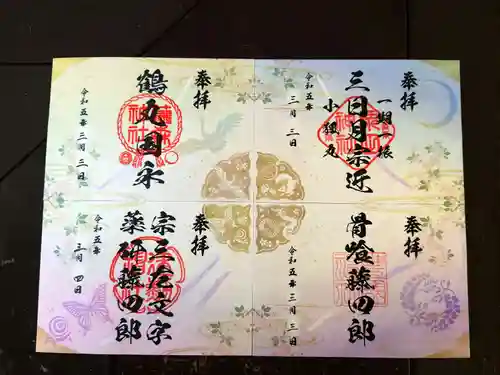 奉拝
一期一振
三日月宗近
小狐丸
令和五年
三月 三日
奉拝
鶴丸国永
令和五年 三月 三日
奉拝
骨喰藤四郎
令和五年 三月 三日
奉拝
宗三左文字
薬研藤四郎
令和五年
三月 四日